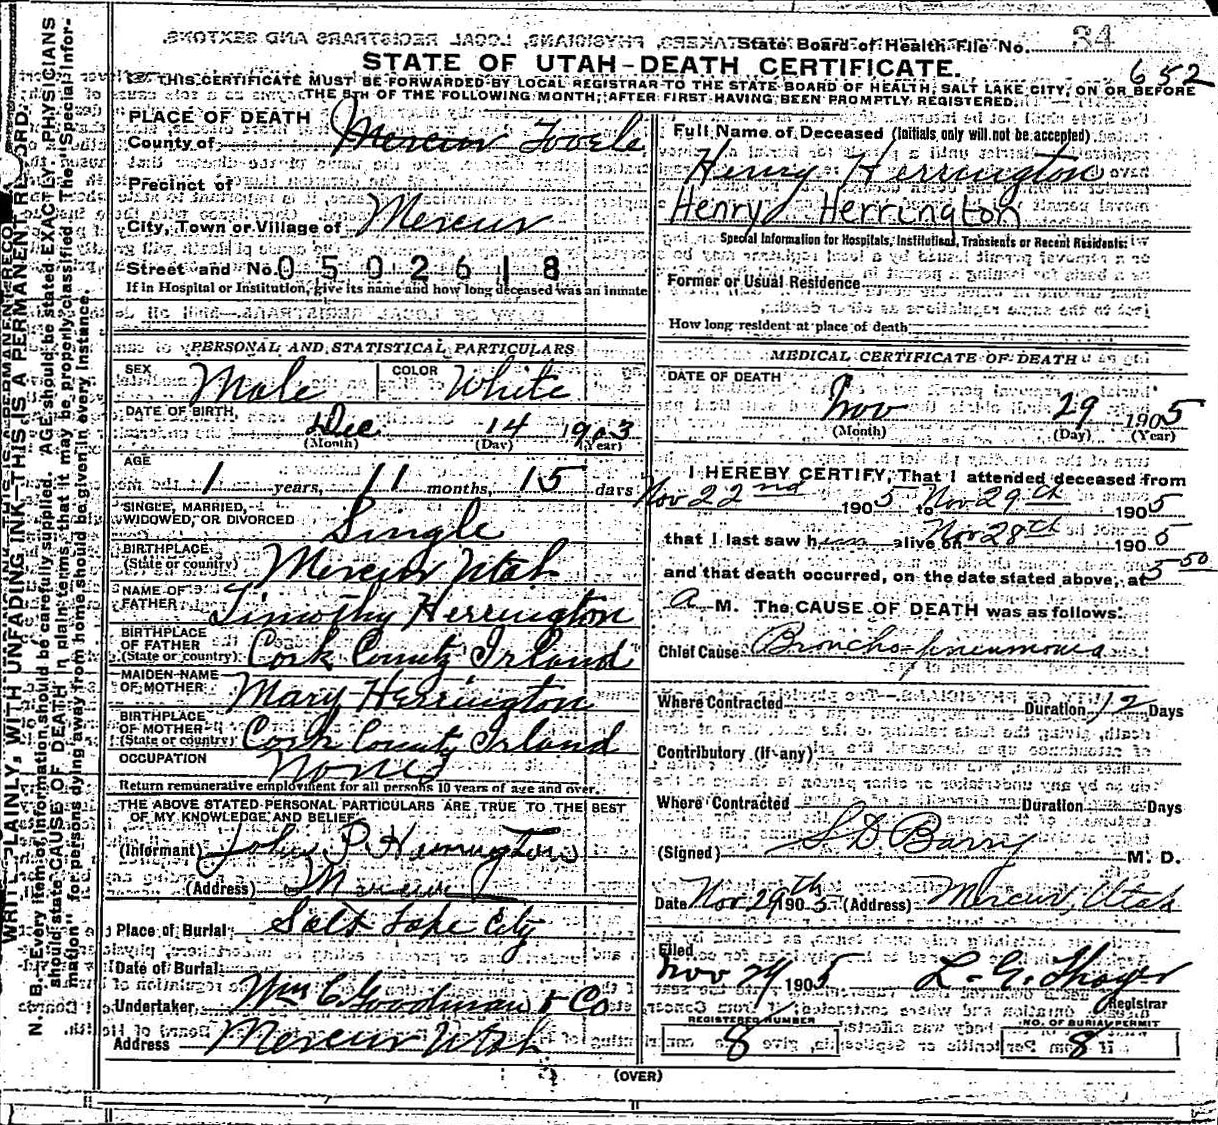 State Board of Health File No. 34
652
STATE OF UTAH-DEATH CERTIFICATE.
THIS CERTIFICATE MUST BE FORWARDED BY LOCAL REGISTRAR TO THE STATE BOARD OF HEALTH, SALT LAKE CITY, ON OR BEFORE
THE 5TH OF THE FOLLOWING MONTH, AFTER FIRST HAVING BEEN PROMPTLY REGISTERED.
WRITE PLAINLY, WITH UNFADING INK—THIS IS A PERMANENT RECORD.
N. B.—Every item of information should be carefully supplied. AGE should be stated EXACTLY. PHYSICIANS
should state CAUSE OF DEATH in plain terms, that it may be properly classified. The "Special Infor-
mation" for persons dying away from home should be given in every instance.
PLACE OF DEATH
County of Mercur Tooele
Precinct of
City, Town or Village of Mercur
Street and No. 0502618
If in Hospital or Institution, give its name and how long deceased was an inmate
PERSONAL AND STATISTICAL PARTICULARS
SEX Male COLOR White
DATE OF BIRTH, Dec 14 1903
(Month) (Day) (Year)
AGE 1 years, 11 months, 15 days
SINGLE, MARRIED,
WIDOWED, OR DIVORCED Single
BIRTHPLACE
(State or country) Mercur Utah
NAME OF
FATHER Timothy Herrington
BIRTHPLACE
OF FATHER
(State or country) Cork County Irland
MAIDEN NAME
OF MOTHER Mary Herrington
BIRTHPLACE
OF MOTHER
(State or country) Cork County Irland
OCCUPATION
Return remunerative employment for all persons 10 years of age and over.
THE ABOVE STATED PERSONAL PARTICULARS ARE TRUE TO THE BEST
OF MY KNOWLEDGE AND BELIEF
(Informant) John P. Herrington
(Address) Mercur
Place of Burial Salt Lake City
Date of Burial
Undertaker Wm C. Goodman & Co
Address Mercur Utah
Full Name of Deceased (Initials only will not be accepted)
Henry Herrington
Henry Herrington
Special Information for Hospitals, Institutions, Transients or Recent Residents:
Former or Usual Residence
How long resident at place of death
MEDICAL CERTIFICATE OF DEATH
DATE OF DEATH
Nov 29 1905
(Month) (Day) (Year)
I HEREBY CERTIFY, That I attended deceased from
Nov 22nd 1905 to Nov 29th 1905
that I last saw him alive on Nov 28th 1905
and that death occurred, on the date stated above, at 5 50
a M. The CAUSE OF DEATH was as follows:
Chief Cause Broncho-pneumonia
Where Contracted Duration 12 Days
Contributory (if any)
Where Contracted Duration Days
(Signed) S D Barry M. D.
Date Nov 29th 1905 (Address) Mercur, Utah
Filed
Nov 29 1905 L. G. Thayer
Registrar
REGISTERED NUMBER
8
NO. OF BURIAL PERMIT
8
(OVER)